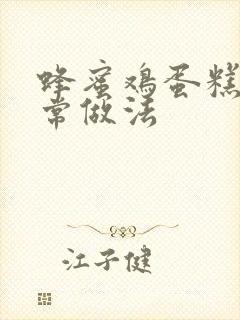 蜂蜜鸡蛋糕
常做法
江子健